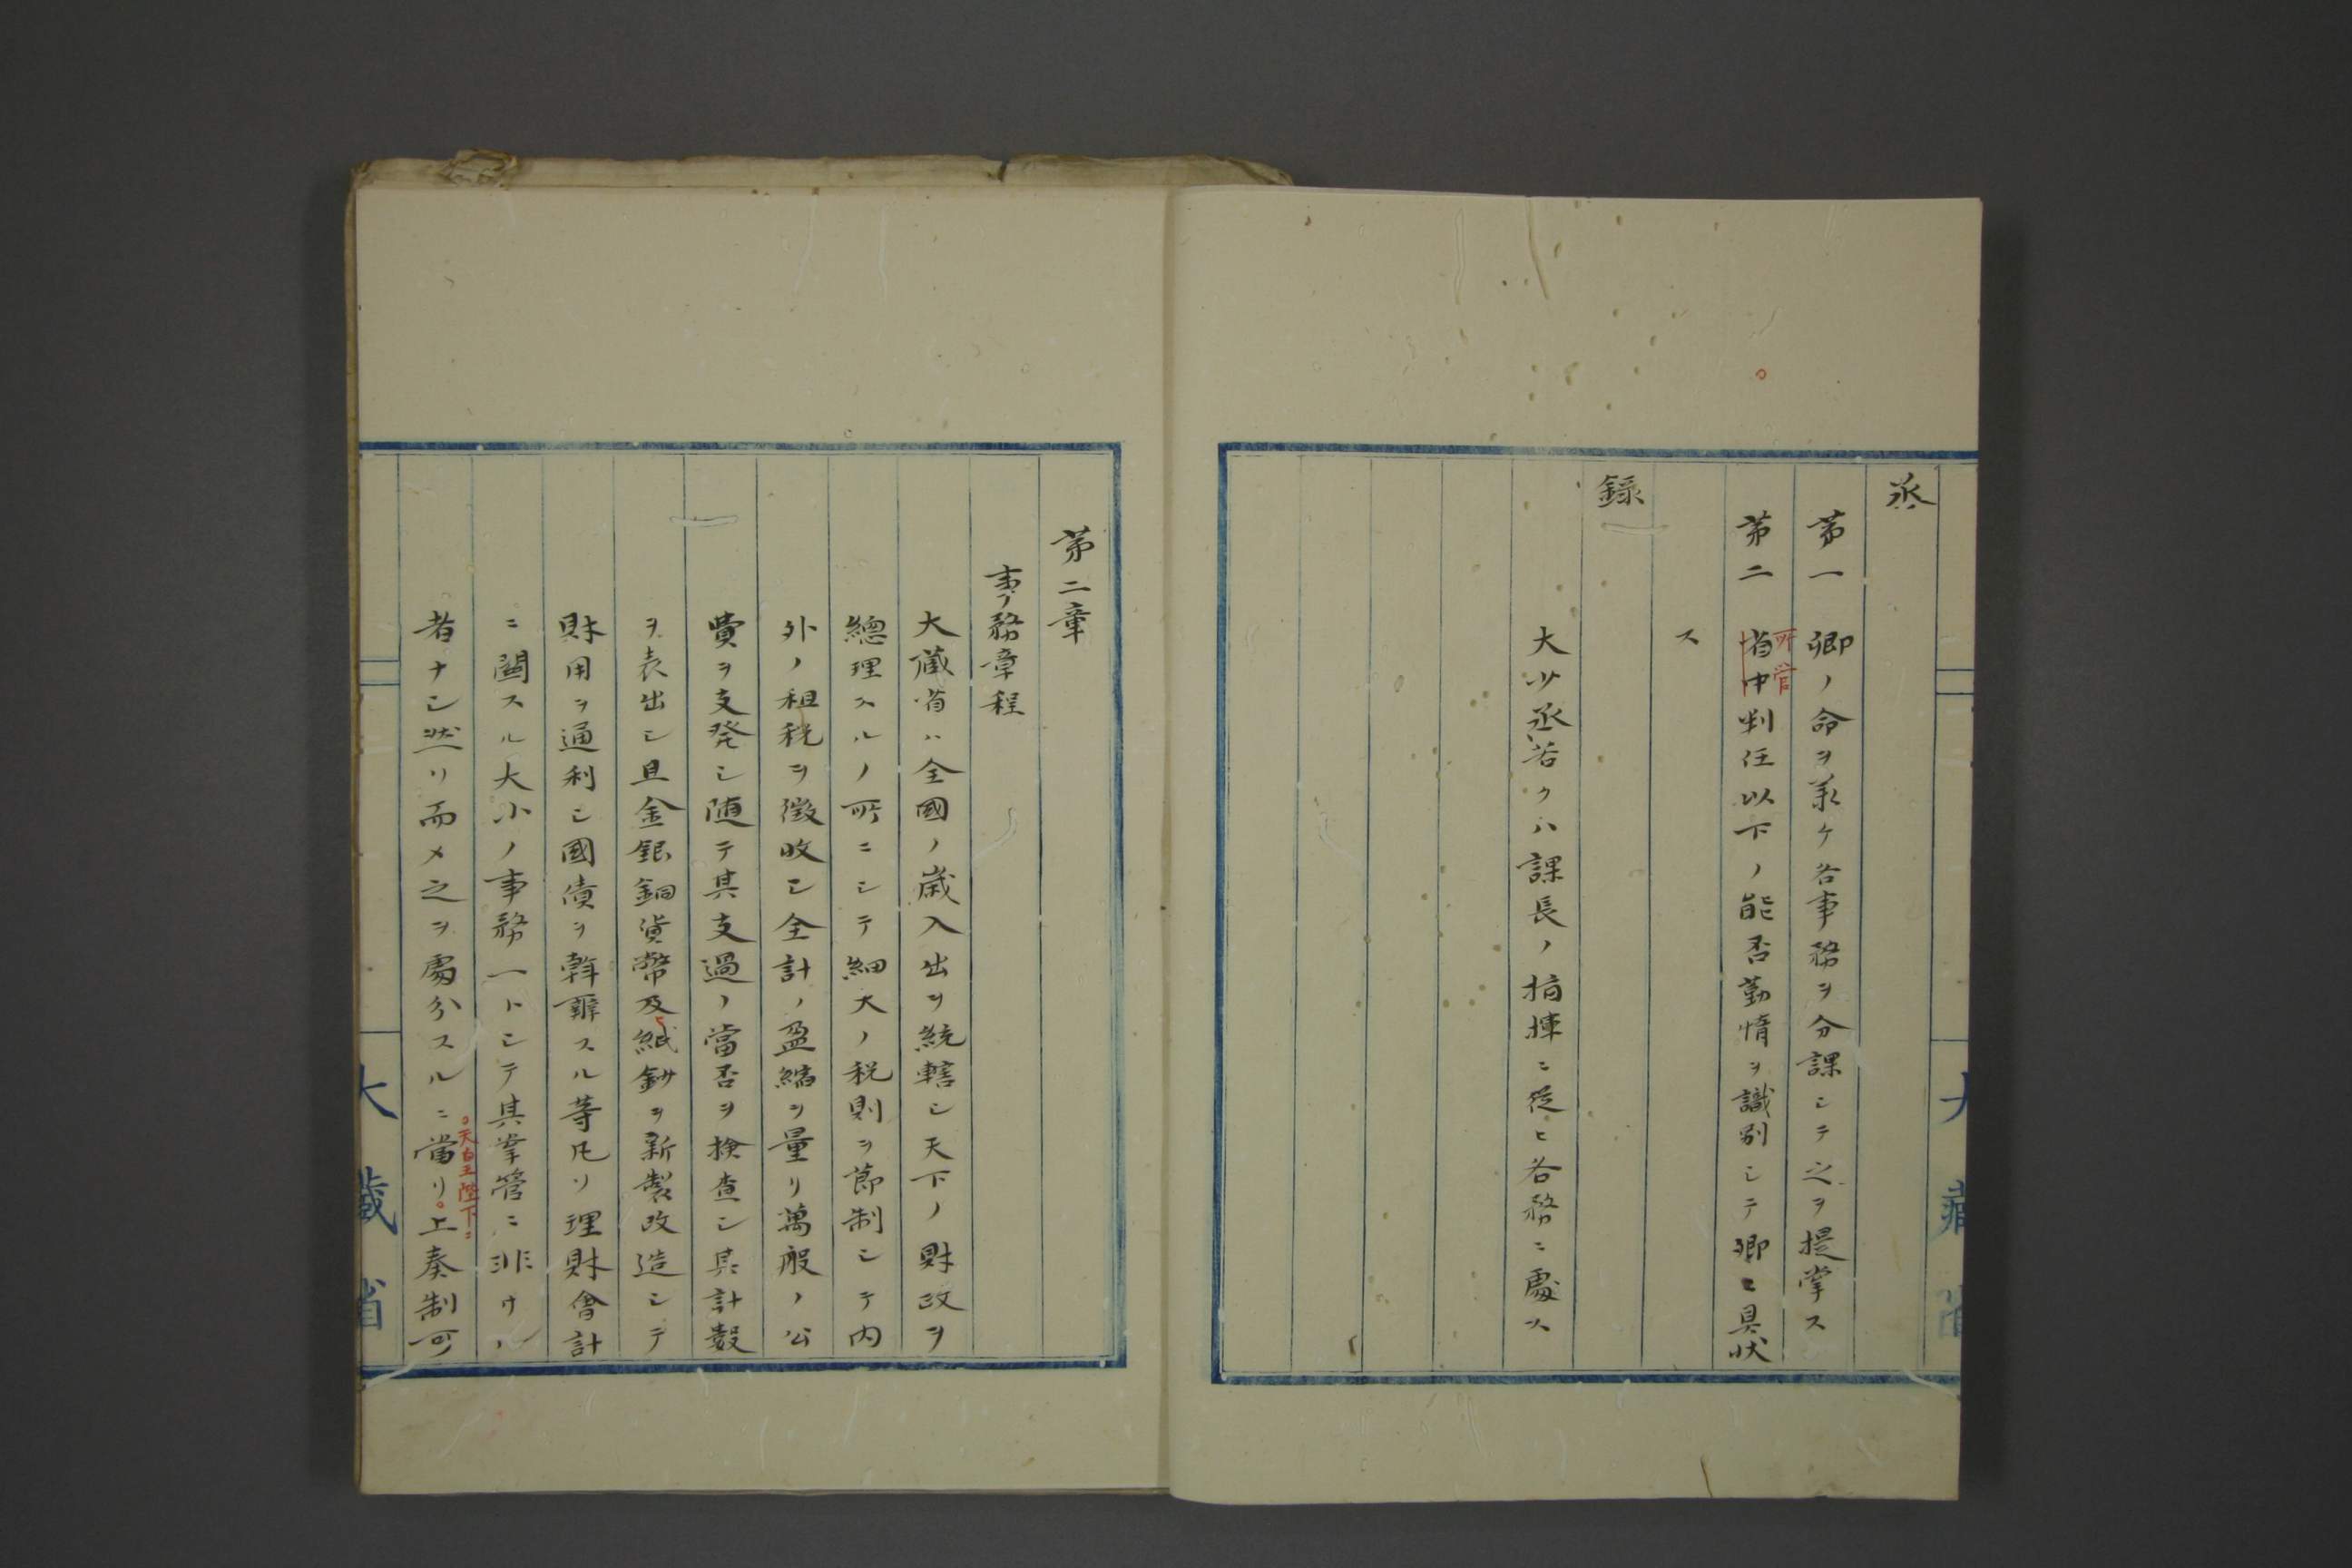 丞
第一　卿ノ命ヲ承ケ各事務ヲ分課シテ之ヲ提掌ス
所管
第二　省中判任以下ノ能否勤惰ヲ識別シテ卿ニ具状
ス
録
大少丞若クハ課長ノ指揮ニ従ヒ各務ニ處ス
大藏省
第二章
事務章程
大藏省ハ全國ノ歳入出ヲ統轄シ天下ノ財政ヲ
總理スルノ所ニシテ細大ノ税則ヲ節制シテ内
外ノ租税ヲ徴收シ全計ノ盈縮ヲ量リ萬般ノ公
費ヲ支発シ随テ其支過ノ當否ヲ検査シ其計数
ヲ表出シ且金銀銅貨幣及紙鈔ヲ新製改造シテ
財用ヲ通利シ國債ヲ斡辦スル等凡ソ理財會計
ニ關スル大小ノ事務一トシテ其掌管ニ非サル
。天皇陛下ニ
者ナシ然リ而メ之ヲ處分スルニ當リ。上奏制可
大藏省